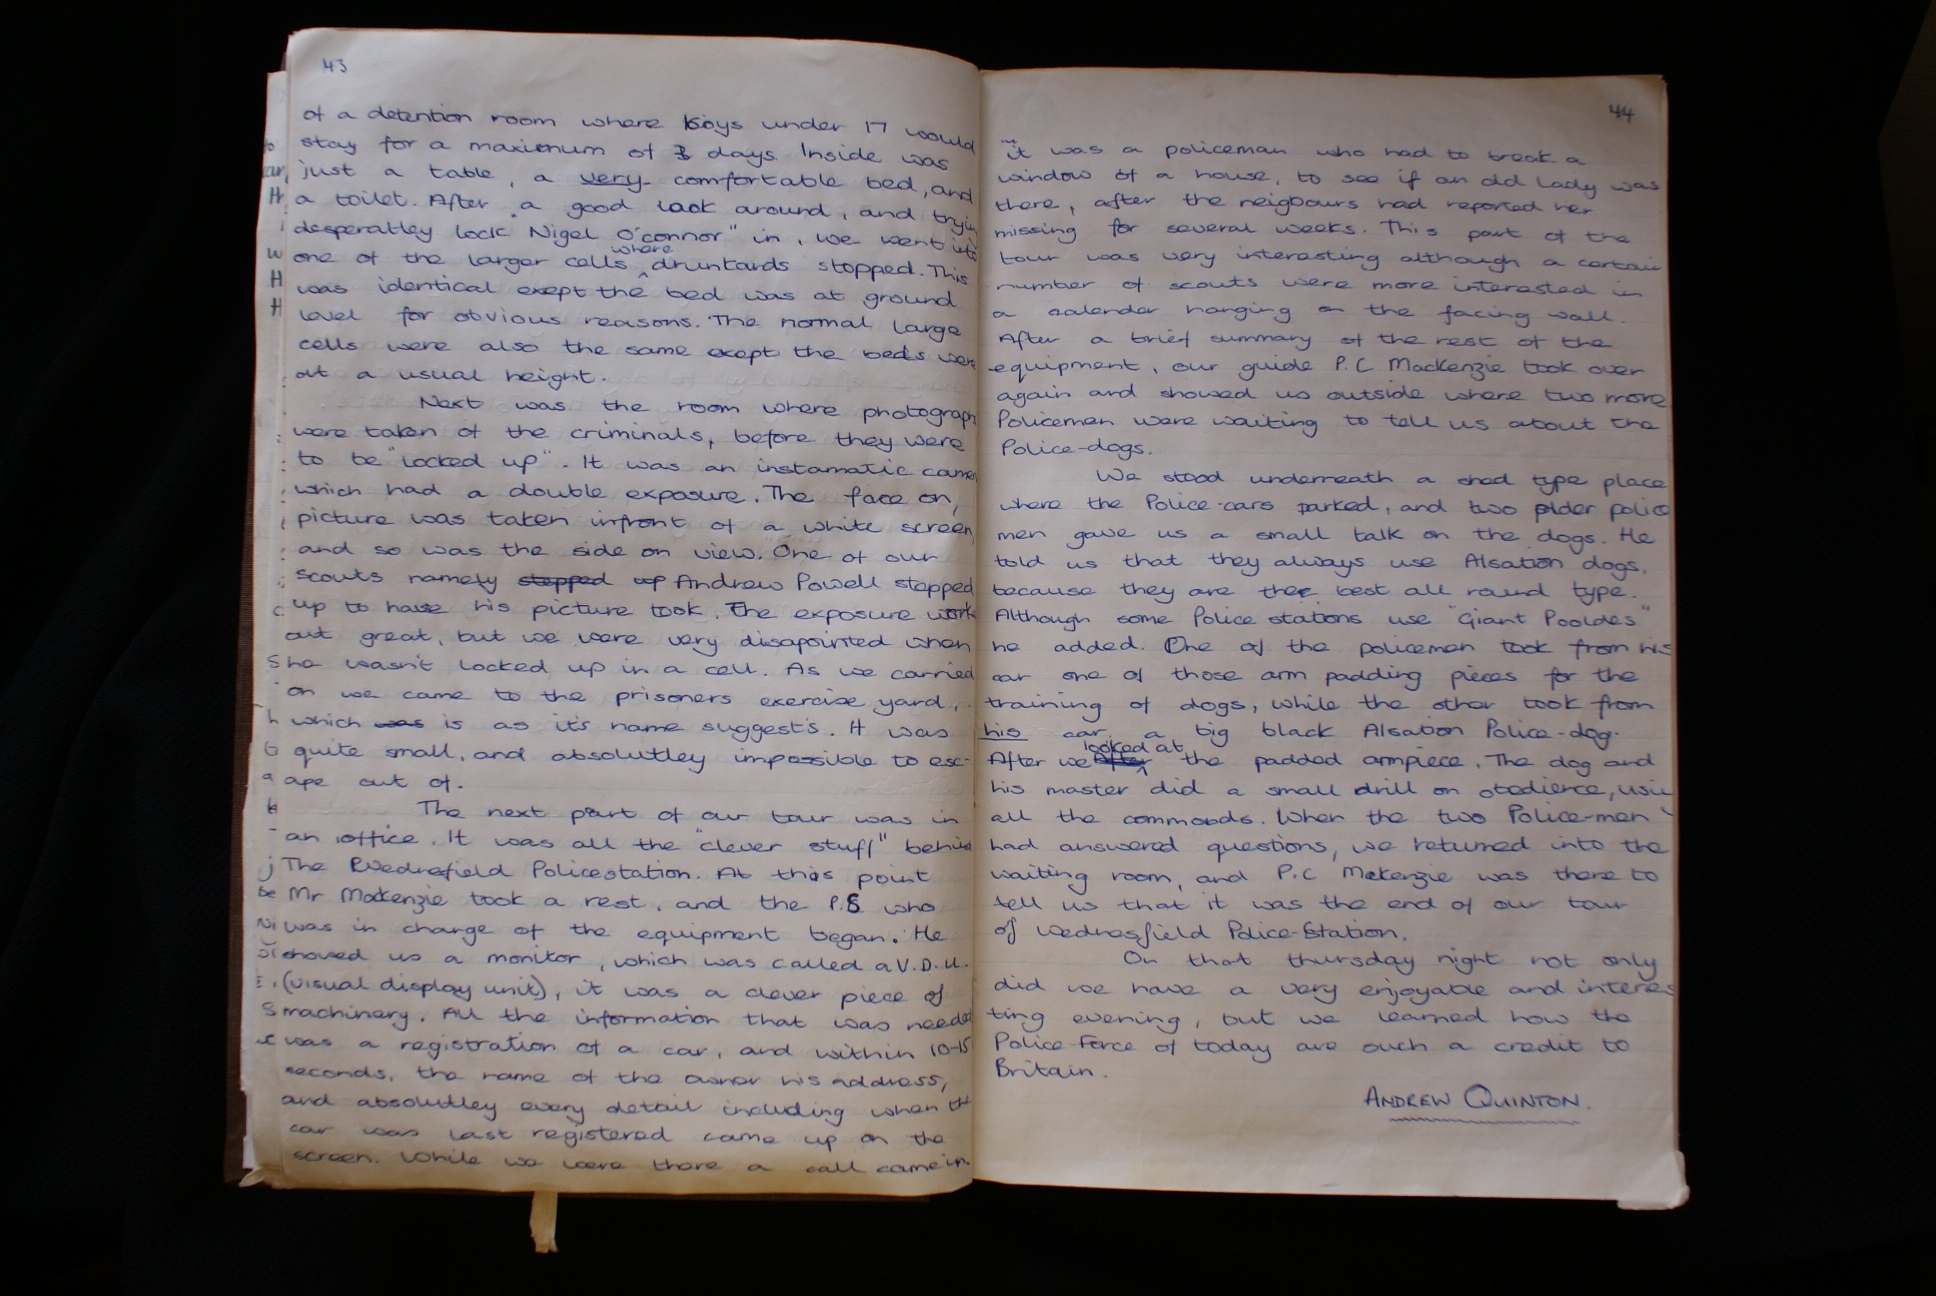 43
of a detention room where boys under 17 would
stay for a maximum of 3 days. Inside was
just a table, a very comfortable bed, and
a toilet. After a good look around, and tryin
desperatley lock "Nigel O'connor" in, we went into
one of the larger cells where drunkards stopped. This
was identical exept the bed was at ground
level for obvious reasons. The normal large
cells were also the same exept the beds were
at a usual height.
Next was the room where photograph
were taken of the criminals, before they were
to be "locked up". It was an instamatic camer
which had a double exposure. The face on,
picture was taken infront of a white screen,
and so was the side on view. One of our
scouts namely stepped up Andrew Powell stepped
up to have his picture took. The exposure work
out great, but we were very disapointed when
he wasn't locked up in a cell. As we carried
on we came to the prisoners exercise yard,
which was is as it's name suggest's. It was
quite small, and absolutley impossible to esc-
ape out of.
The next part of our tour was in
an office. It was all the "clever stuff" behind
The Wednesfield Policestation. At this point
Mr Mackenzie took a rest, and the P.S who
was in charge of the equipment began. He
showed us a monitor, which was called a V.D.U.
(visual display unit), it was a clever piece of
machinery. All the information that was needed
was a registration of a car, and within 10-15
seconds, the name of the owner his address,
and absolutley every detail including when the
car was last registered came up on the
screen. While we were there a call came in.
44
it was a policeman who had to break a
window of a house, to see if an old lady was
there, after the neigbours had reported her
missing for several weeks. This part of the
tour was very interesting although a certain
number of scouts were more interested in
a calender hanging on the facing wall.
After a brief summary of the rest of the
equipment, our guide P.C Mackenzie took over
again and showed us outside where two more
Policemen were waiting to tell us about the
Police-dogs.
We stood underneath a shed type place
where the Police-cars parked, and two older police
men gave us a small talk on the dogs. He
told us that they always use Alsation dogs,
because they are the best all round type.
Although some Police stations use "Giant Pooldes"
he added. One of the policemen took from his
car one of those arm padding pieces for the
training of dogs, while the other took from
his car, a big black Alsation Police-dog.
After we looked at the padded armpiece. The dog and
his master did a small drill on obedience, usin
all the commands. When the two Police-men
had answered questions, we returned into the
waiting room, and P.C Mckenzie was there to
tell us that it was the end of our tour
of Wednesfield Police-Station.
On that thursday night not only
did we have a very enjoyable and interes
ting evening, but we learned how the
Police-Force of today are such a credit to
Britain.
ANDREW QUINTON.